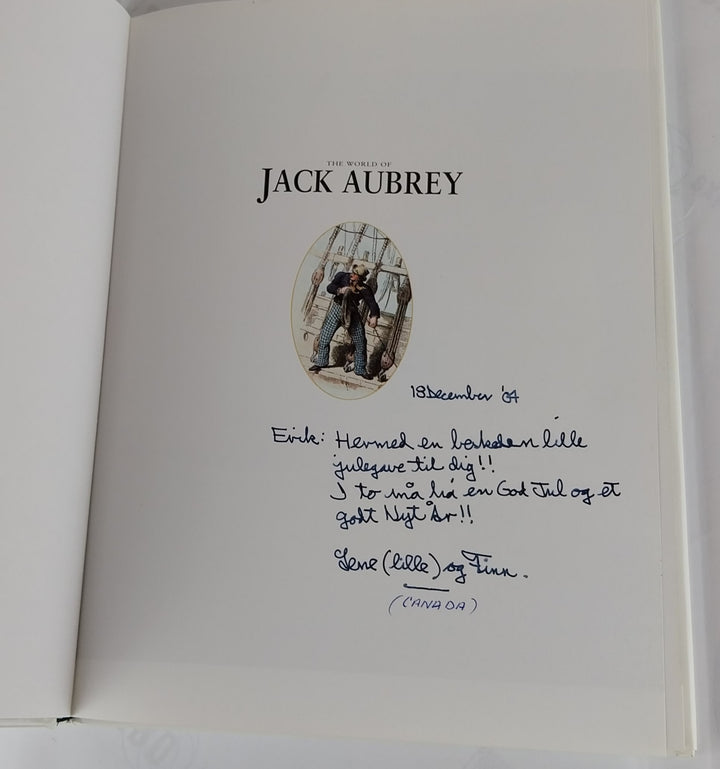 THE WORLD OF
JACK AUBREY
18 December '04
Erik: Hermed en beskeden lille
julegave til dig!!
I to må ha' en God Jul og et
godt Nyt År!!
Lene (lille) og Finn.
(CANADA)